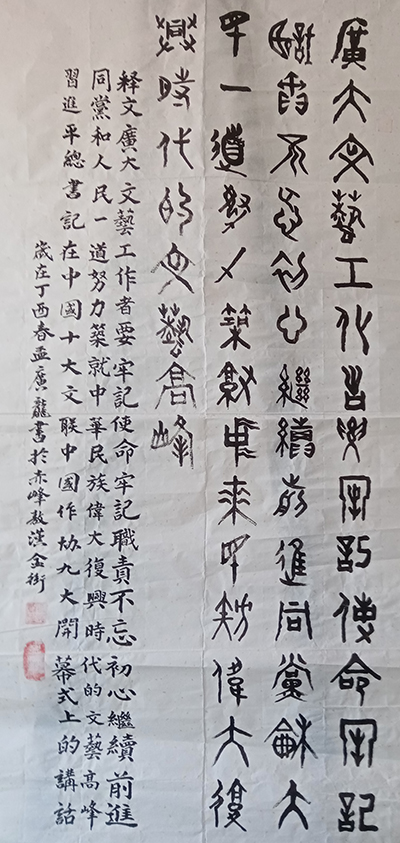 廣大文藝工作者要牢記使命牢記
職責不忘初心繼續前進同黨和大
民一道努力築就中華民族偉大復
興時代的文藝高峰
释文廣大文藝工作者要牢記使命牢記職責不忘初心繼續前進
同黨和人民一道努力築就中華民族偉大復興時代的文藝高峰
習進平總書記在中國十大文聯中國作协九大開幕式上的講話
歲在丁酉春孟廣龍書於赤峰敖漢金街